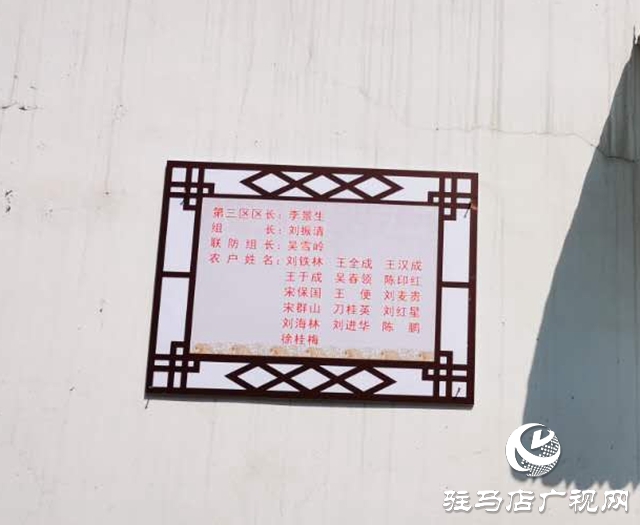 第三区区长：李景生
组　　　长：刘振清
联防组长：吴雪岭
农户姓名：刘铁林　王全成　王汉成
王于成　吴春领　陈印红
宋保国　王　便　刘麦贵
宋群山　刀桂英　刘红星
刘海林　刘进华　陈　鹏
徐桂梅
驻马店广视网